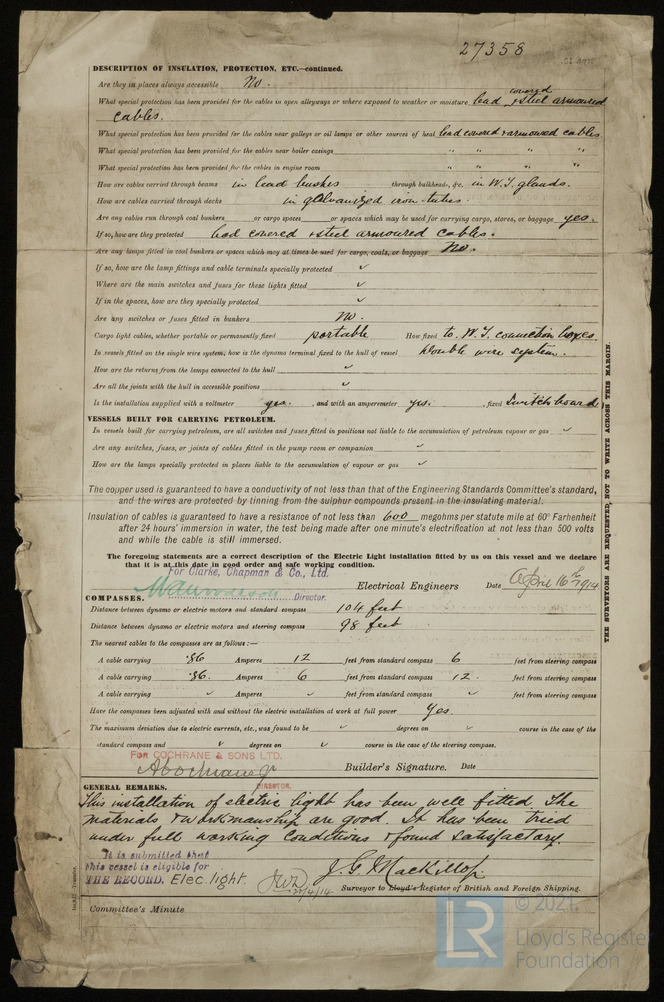 27358
DESCRIPTION OF INSULATION, PROTECTION, ETC.—continued.
Are they in places always accessible No.
What special protection has been provided for the cables in open alleyways or where exposed to weather or moisture lead covered & steel armoured
cables.
What special protection has been provided for the cables near galleys or oil lamps or other sources of heat lead covered & armoured cables
What special protection has been provided for the cables near boiler casings " " "
What special protection has been provided for the cables in engine room " " "
How are cables carried through beams in lead bushes through bulkheads, &c. in W.T. glands.
How are cables carried through decks in galvanized iron tubes.
Are any cables run through coal bunkers or cargo spaces or spaces which may be used for carrying cargo, stores, or baggage yes.
If so, how are they protected lead covered & steel armoured cables.
Are any lamps fitted in coal bunkers or spaces which may at times be used for cargo, coals, or baggage No.
If so, how are the lamp fittings and cable terminals specially protected ✓
Where are the main switches and fuses for these lights fitted ✓
If in the spaces, how are they specially protected ✓
Are any switches or fuses fitted in bunkers No.
Cargo light cables, whether portable or permanently fixed portable How fixed to W.T. connection boxes.
In vessels fitted on the single wire system, how is the dynamo terminal fixed to the hull of vessel Double wire system.
How are the returns from the lamps connected to the hull ✓
Are all the joints with the hull in accessible positions ✓
Is the installation supplied with a voltmeter yes. , and with an amperemeter yes. , fixed Switch board
VESSELS BUILT FOR CARRYING PETROLEUM.
In vessels built for carrying petroleum, are all switches and fuses fitted in positions not liable to the accumulation of petroleum vapour or gas ✓
Are any switches, fuses, or joints of cables fitted in the pump room or companion ✓
How are the lamps specially protected in places liable to the accumulation of vapour or gas ✓
The copper used is guaranteed to have a conductivity of not less than that of the Engineering Standards Committee's standard,
and the wires are protected by tinning from the sulphur compounds present in the insulating material.
Insulation of cables is guaranteed to have a resistance of not less than 600 megohms per statute mile at 60° Farhenheit
after 24 hours' immersion in water, the test being made after one minute's electrification at not less than 500 volts
and while the cable is still immersed.
The foregoing statements are a correct description of the Electric Light installation fitted by us on this vessel and we declare
that it is at this date in good order and safe working condition.
For Clarke, Chapman & Co., Ltd.
Director. Electrical Engineers Date April 16th 1914
COMPASSES.
Distance between dynamo or electric motors and standard compass 104 feet
Distance between dynamo or electric motors and steering compass 98 feet
The nearest cables to the compasses are as follows:—
A cable carrying .36 Amperes 12 feet from standard compass 6 feet from steering compass
A cable carrying .36. Amperes 6 feet from standard compass 12. feet from steering compass
A cable carrying ✓ Amperes ✓ feet from standard compass ✓ feet from steering compass
Have the compasses been adjusted with and without the electric installation at work at full power Yes.
The maximum deviation due to electric currents, etc., was found to be ✓ degrees on ✓ course in the case of the
standard compass and ✓ degrees on ✓ course in the case of the steering compass.
FOR COCHRANE & SONS LTD.
A Cochrane Jr Builder's Signature. Date
DIRECTOR.
GENERAL REMARKS.
This installation of electric light has been well fitted The
materials & workmanship are good. It has been tried
under full working conditions & found satisfactory.
It is submitted that
this vessel is eligible for
THE RECORD. Elec. light. JWD 22/4/14
J. G. Mackillop
Surveyor to Lloyd's Register of British and Foreign Shipping.
Committee's Minute
THE SURVEYORS ARE REQUESTED NOT TO WRITE ACROSS THIS MARGIN.
LR
© 2021
Lloyd's Register
Foundation